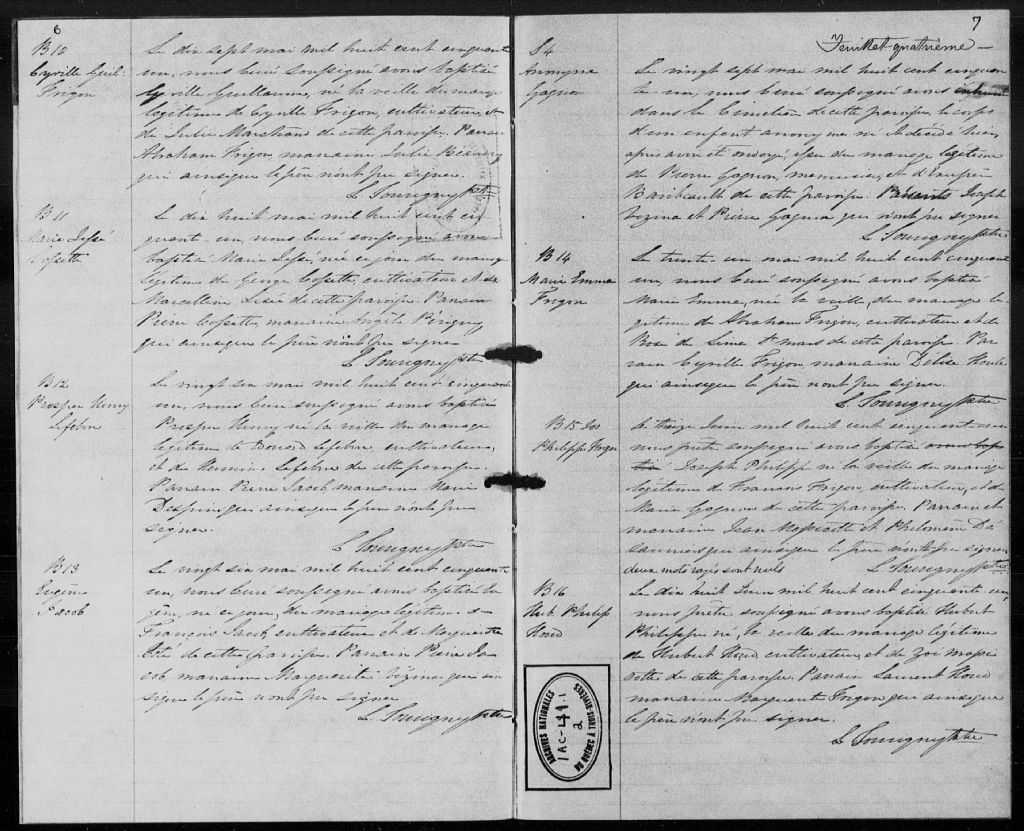 6
B10
Cyrille Guil-
Frigon
Le dix sept mai mil huit cent cinquante
un, nous Curé soussigné avons baptisé
Cyrille Guillaume, né la veille du mariage
légitime de Cyrille Frigon, cultivateur, et
de Julie Marchand de cette paroisse. Parrain
Abraham Frigon, marraine Julie Beaudry
qui ainsique le père n'ont pu signer.
L. Souvigny Ptre
B11
Marie Lesé
Cossette
Le dix huit mai mil huit cent cin
quante-un, nous Curé soussigné avons
baptisé Marie née ce jour du mariage
légitime de George Cossette, cultivateur et de
Marcelline de cette paroisse. Parrain
Pierre Cossette, marraine Angèle Périgny
qui ainsique le père n'ont pu signer
L. Souvigny Ptre
B12
Prosper Henry
Lefebvre
Le vingt six mai mil huit cent cinquante
un, nous Curé soussigné avons baptisé
Prosper Henry né la veille du mariage
légitime de Lefebvre, cultivateur,
et de Lefebvre de cette paroisse.
Parrain Pierre Jacob, marraine Marie
qui ainsique le père n'ont pu
signer.
L. Souvigny Ptre
B13
Eugène
Jacob
Le vingt six mai mil huit cent cinquante
un, nous Curé soussigné avons baptisé Eu
gène, né ce jour, du mariage légitime de
François Jacob, cultivateur et de Marguerite
de cette paroisse. Parrain Pierre Ja
cob, marraine Marguerite Vézina qui ain
sique le père n'ont pu signer
L. Souvigny Ptre
7
Feuillet quatrième —
S4
Anonyme
Gagnon
Le vingt sept mai mil huit cent cinquan
te un, nous Curé soussigné avons inhumé
dans le Cimetière de cette paroisse, le corps
d'un enfant anonyme né et décédé hier,
après avoir été ondoyé, issu du mariage légitime
de Pierre Gagnon, menuisier, et d'
Baribeault de cette paroisse. Présents Joseph
Vezina et Pierre Gagnon qui n'ont pu signer
L. Souvigny Ptre
B14
Marie Emma
Frigon
Le trente-un mai mil huit cent cinquante
un, nous Curé soussigné avons baptisé
Marie Emma, née la veille, du mariage lé
gitime de Abraham Frigon, cultivateur et de
Rose de Lima St mars de cette paroisse. Par
rain Cyrille Frigon marraine Délise Houle
qui ainsique le père n'ont pu signer.
L. Souvigny Ptre
B15 Jos
Philippe Frigon
Le treize Juin mil huit cent cinquante un
nous prêtre soussigné avons baptisé avons bap
tisé Joseph Philippe né la veille du mariage
légitime de François Frigon, cultivateur, et de
Marie Gagnon de cette paroisse. Parrain et
marraine Jean Massicotte et Philomène Dé
saulniers qui ainsique le père n'ont pu signer
deux mots rayés sont nuls L. Souvigny Ptre
B16
Hub. Philip
Houd
Le dix huit Juin mil huit cent cinquante un,
nous prêtre soussigné avons baptisé Hubert
Philippe né, la veille du mariage légitime
de Hubert Houd, cultivateur, et de Zoé Massi
cotte de cette paroisse. Parrain Laurent Houd
marraine Marguerite Frigon qui ainsique
le père n'ont pu signer.
L. Souvigny Ptre
ARCHIVES NATIONALES
1AC-L49-1
2
DU QUÉBEC À TROIS-RIVIÈRES